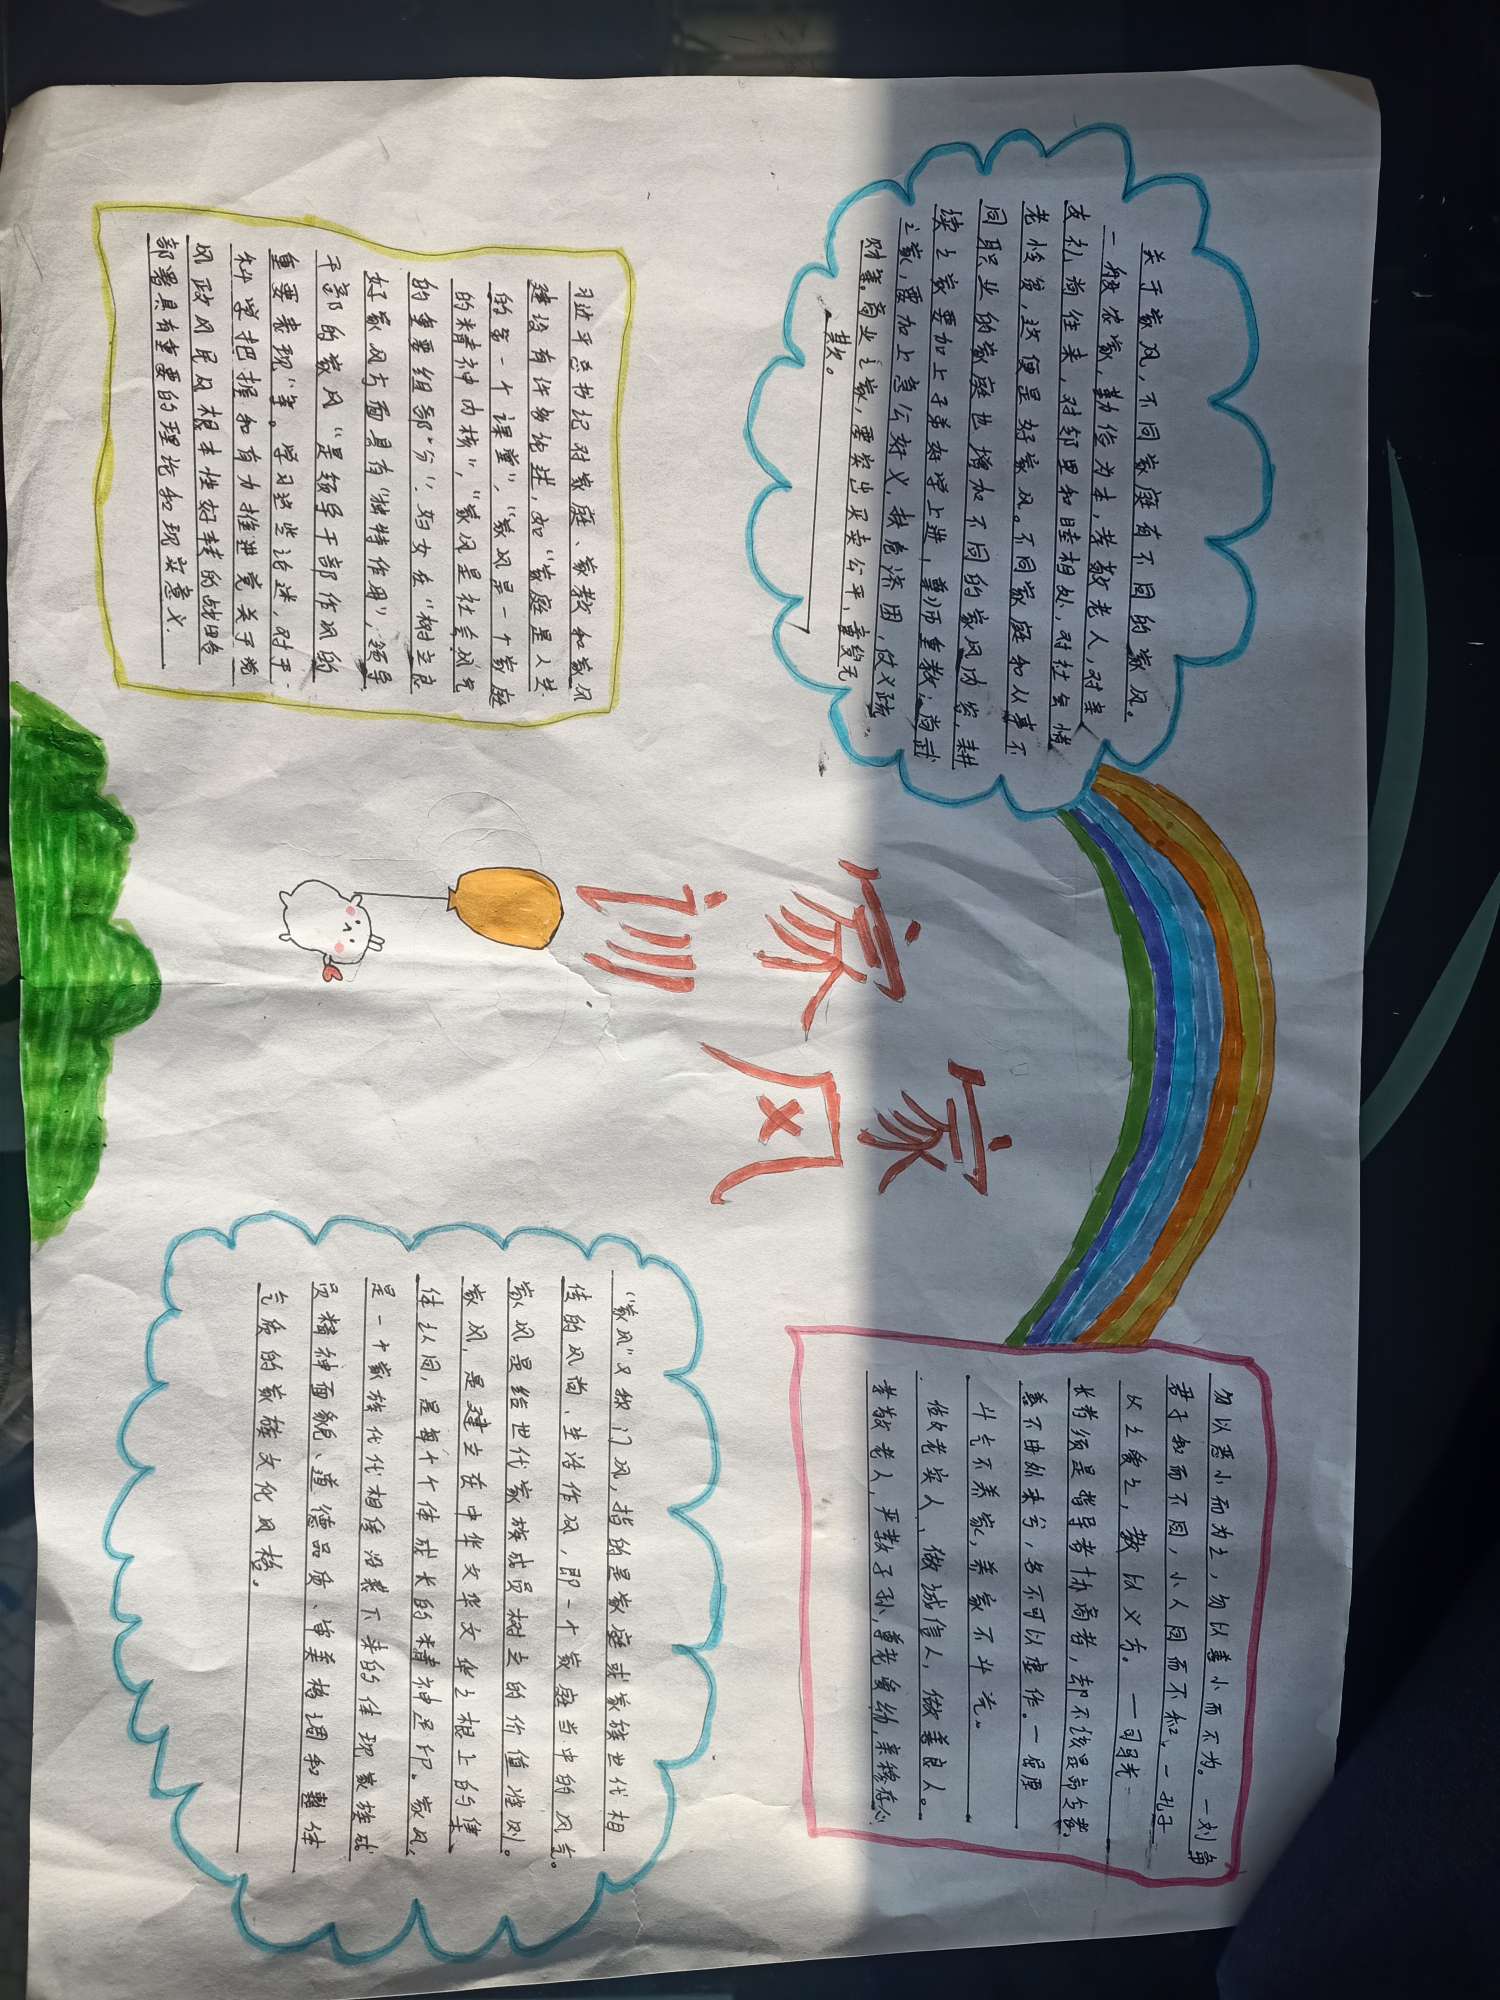 家风
家训
关于家风,不同家庭有不同的家风。
一般农家,勤俭为本,孝敬老人,对亲
友礼尚往来,对邻里和睦相处,对社会惜
老怜贫,这便是好家风。不同家庭和从事不
同职业的家庭也增加不同的家风内容,耕
读之家要加上子弟好学上进,尊师重教;尚武
之家,要加上急公好义,扶危济困,仗义疏
财等。商业之家,要突出买卖公平,童叟无
欺。
勿以恶小而为之,勿以善小而不为。一刘备
君子和而不同,小人同而不和、一孔子
以之爱之,教以义方。一司马光
长者须是指导者协商者,却不该是命令者
善不由外来兮,名不可以虚作。一屈原
斗气不养家,养家不斗气。
做老实人、做诚信人,做善良人。
孝敬老人,严教子孙,尊老爱幼,亲穆存心
习近平总书记对家庭、家教和家风
建设有许多论述,如“家庭是人生
的第一个课堂”,“家风是一个家庭
的精神内核”,“家风是社会风气
的重要组部“分”.妇女在“树立良
好家风方面具有“独特作用”,领导
干部的家风“是领导干部作风的
重要表现”等。学习这些论述,对于
科学把握和有力推进党关于党
风政风民风根本性好转的战略
部署具有重要的理论和现实意义.
“家风”又称门风,指的是家庭或家族世代相
传的风尚、生活作风,即一个家庭当中的风气。
家风是给世代家族成员树立的价值准则。
家风,是建立在中华文华文化之根上的集
体认同,是每个个体成长的精神足印。家风,
是一个家族代代相传沿袭下来的体现家族成
员精神面貌、道德品质、审美格调和整体
气质的家族文化风格。